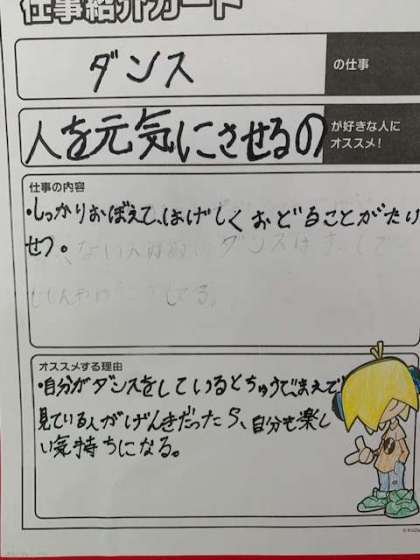 仕事紹介カード
ダンス
の仕事
人を元気にさせるの
が好きな人に
オススメ!
仕事の内容
・しっかりおぼえて、はげしくおどることがたい
せつ。
オススメする理由
・自分がダンスをしているとちゅうで、まえで
見ている人がげんきだったら、自分も楽し
い気持ちになる。